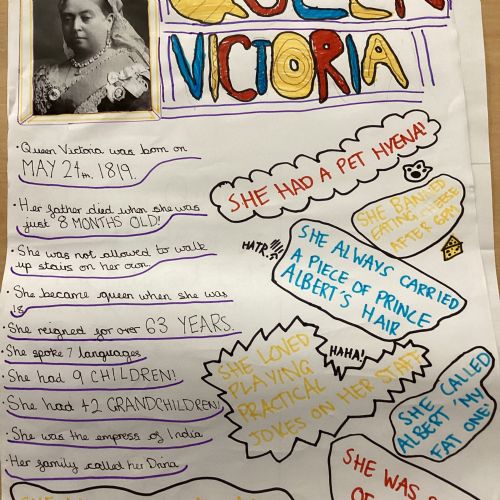 QUEEN
VICTORIA
• Queen Victoria was born on
MAY 24th, 1819.
• Her father died when she was
just 8 MONTHS OLD!
• She was not allowed to walk
up stairs on her own.
• She became queen when she was
18
• She reigned for over 63 YEARS.
• She spoke 7 languages
• She had 9 CHILDREN!
• She had 42 GRANDCHILDREN!
• She was the empress of India
• Her family called her Drina
SHE HAD A PET HYENA!
SHE BANNED
EATING CHEESE
AFTER 6PM
HAIR
SHE ALWAYS CARRIED
A PIECE OF PRINCE
ALBERT'S HAIR
HAHA!
SHE LOVED
PLAYING
PRACTICAL
JOKES ON HER STAFF
SHE CALLED
ALBERT 'MY
FAT ONE!'
SHE WAS